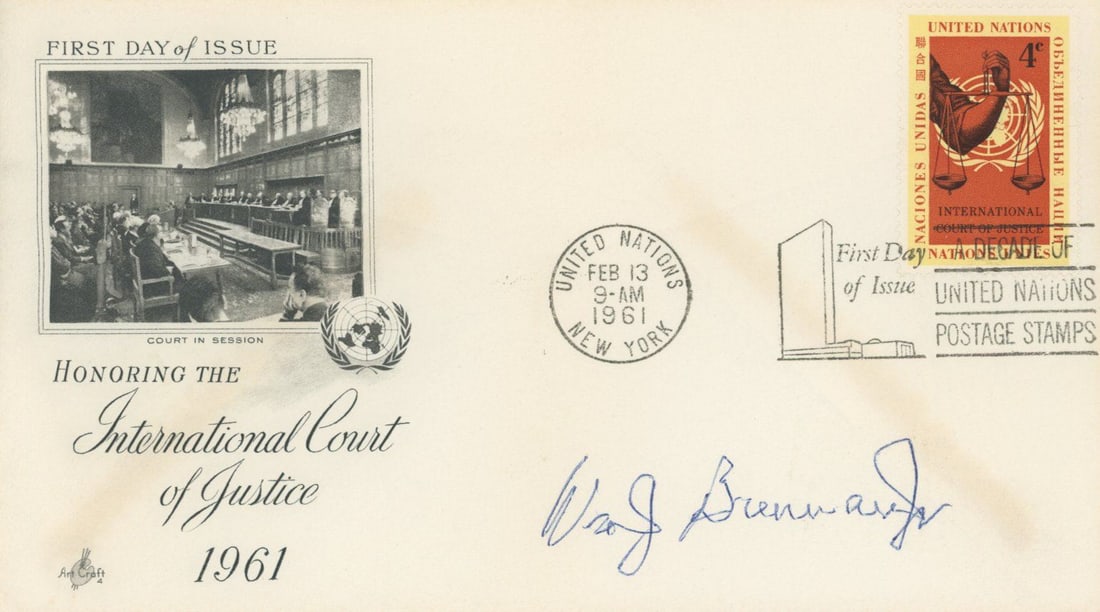 FIRST DAY of ISSUE
COURT IN SESSION
HONORING THE
International Court
of Justice
1961
Art Craft
UNITED NATIONS
FEB 13
9-AM
1961
NEW YORK
First Day
of Issue
A DECADE OF
UNITED NATIONS
POSTAGE STAMPS
UNITED NATIONS
4c
聯合國
NACIONES UNIDAS
ОБЪЕДИНЕННЫЕ НАЦИИ
INTERNATIONAL
COURT OF JUSTICE
NATIONS UNIES
Wm J Brennan Jr